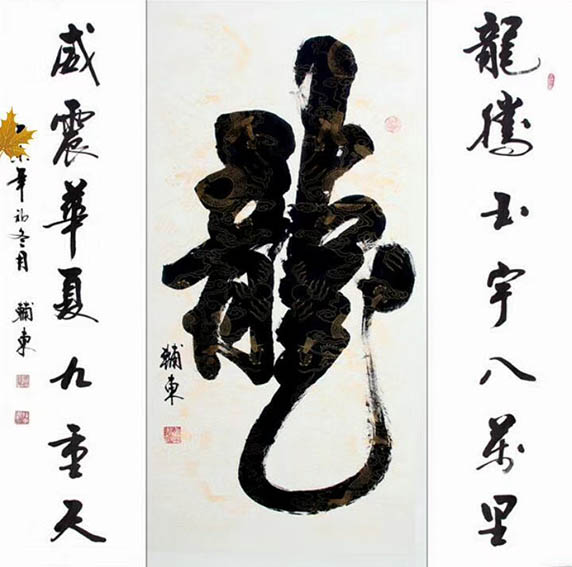 龍騰玉宇八萬里
龍
輔東
威震華夏九重天
年初冬月
輔東